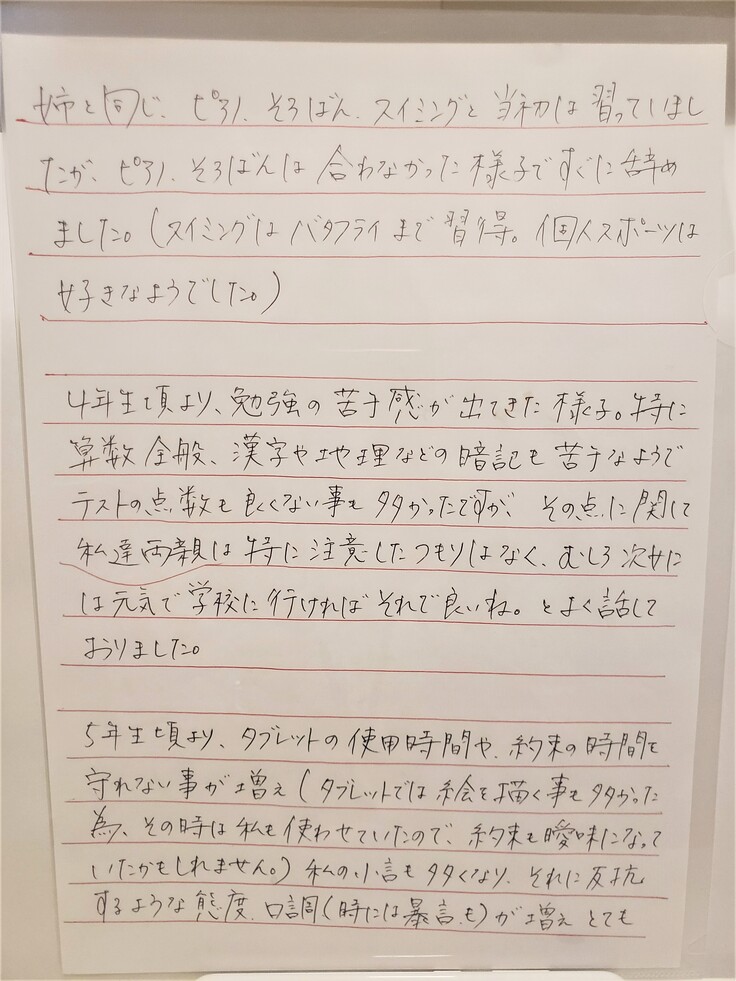 姉と同じ、ピアノ、そろばん、スイミングと当初は習っていまし
たが、ピアノ、そろばんは合わなかった様子ですぐに辞め
ました。(スイミングはバタフライまで習得。個人スポーツは
好きなようでした。)
4年生頃より、勉強の苦手感が出てきた様子。特に
算数全般、漢字や地理などの暗記も苦手なようで
テストの点数も良くない事も多かったですが、その点に関して
私達両親は特に注意したつもりはなく、むしろ次女に
は元気で学校に行ければそれで良いね。とよく話して
おりました。
5年生頃より、タブレットの使用時間や、約束の時間を
守れない事が増え(タブレットでは絵を描く事も多かった
為、その時は私も使わせていたので、約束も曖昧になって
いたかもしれません。)私の小言も多くなり、それに反抗
するような態度、口調(時には暴言も)が増えとても